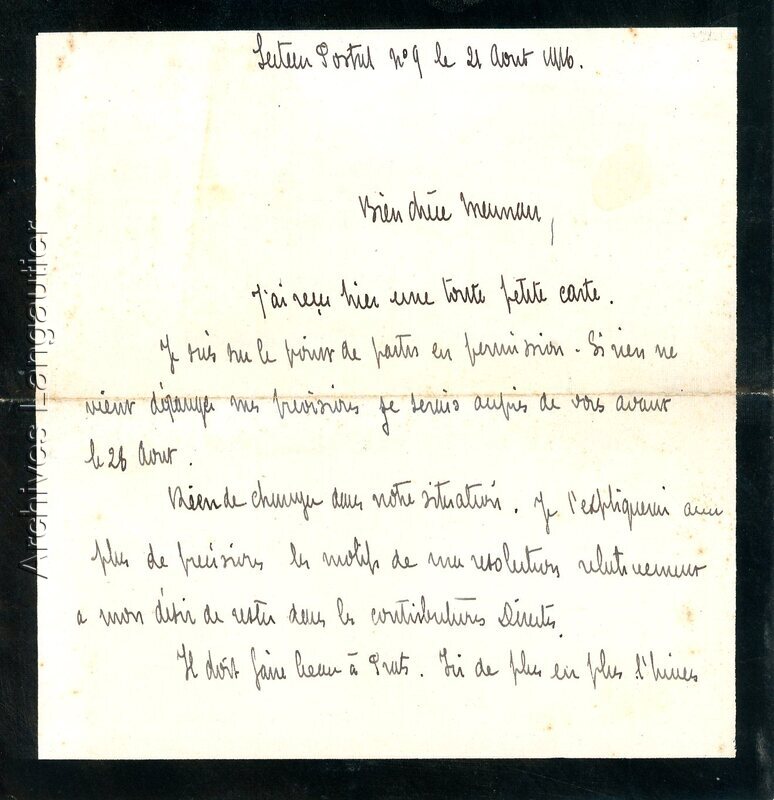 Secteur Postal N° 9 le 21 Aout 1916.
Bien chère Maman,
J'ai reçu hier une toute petite carte.
Je suis sur le point de partir en permission. Si rien ne
vient déranger mes previsions je serais auprès de vous avant
le 26 Aout.
Rien de changer dans notre situation. Je t'expliquerai avec
plus de precisions les motifs de ma resolution relativement
a mon désir de rester dans les contributions Directes.
Il doit faire beau à Prats. Ici de plus en plus l'hiver
Archives Langautier